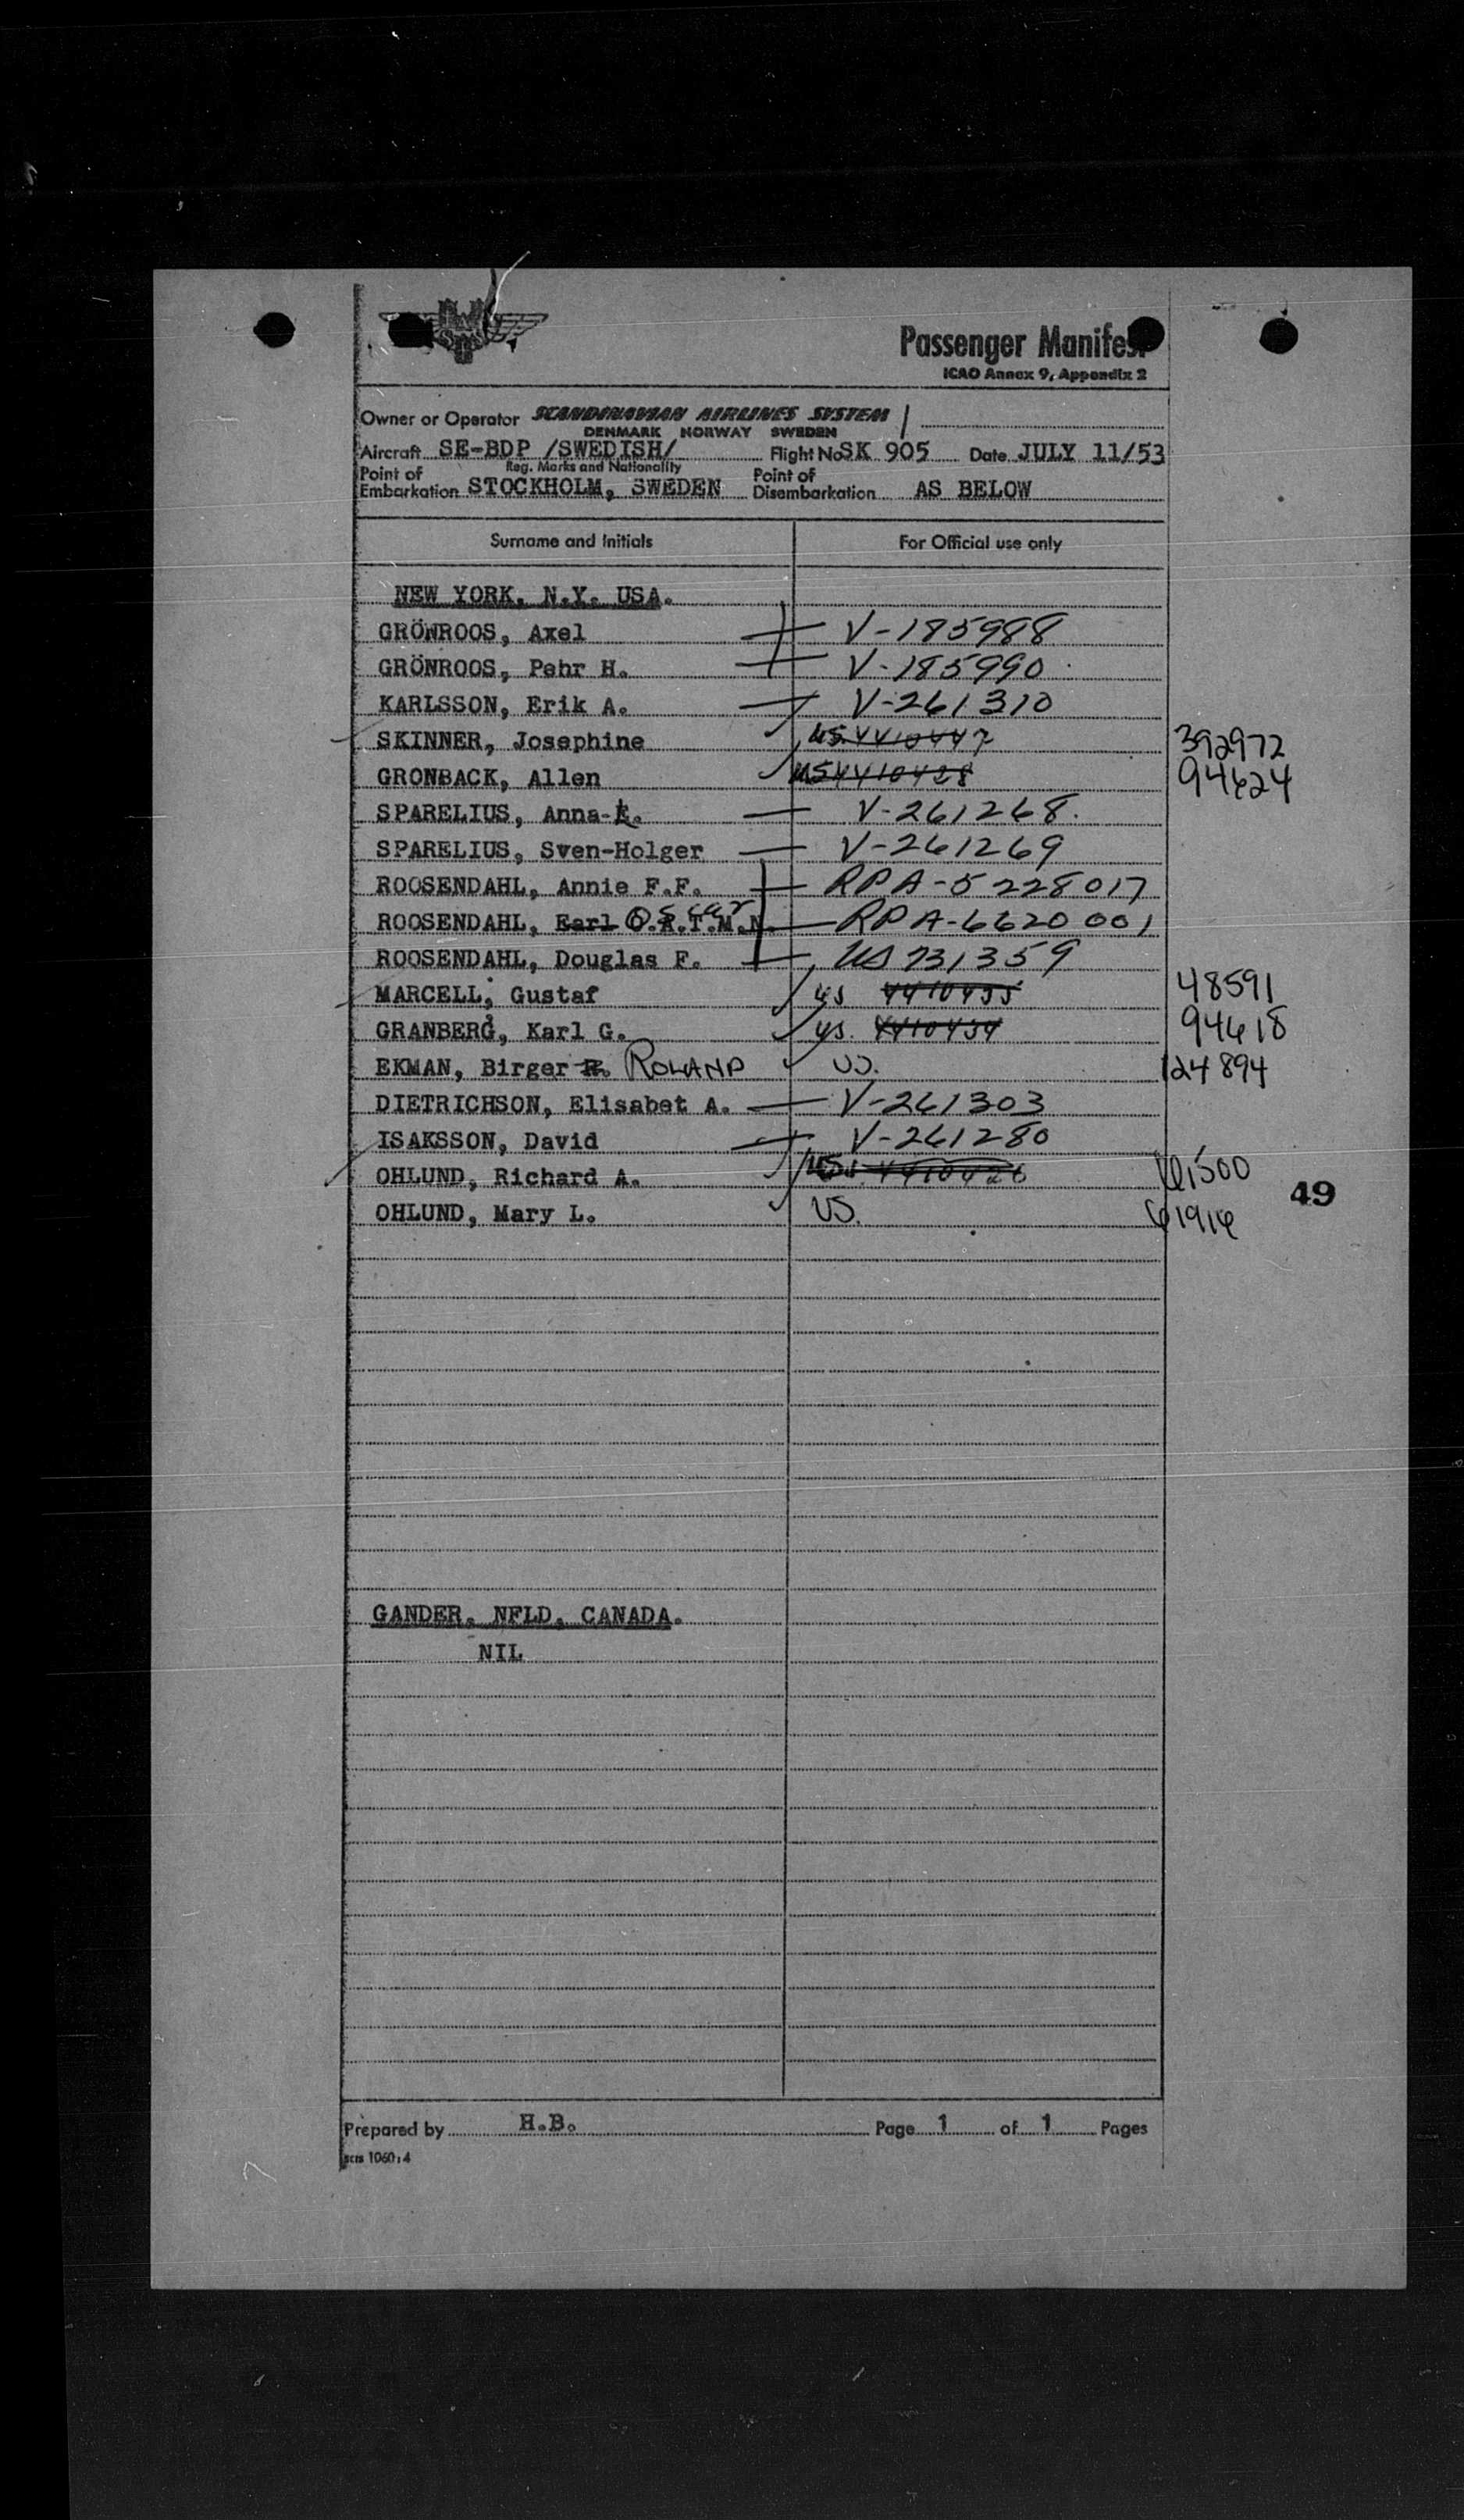 Passenger Manifest
ICAO Annex 9, Appendix 2
Owner or Operator SCANDINAVIAN AIRLINES SYSTEM
DENMARK NORWAY SWEDEN
Aircraft SE-BDP /SWEDISH/ Flight No SK 905 Date JULY 11/53
Reg. Marks and Nationality
Point of Embarkation STOCKHOLM, SWEDEN Point of Disembarkation AS BELOW
Surname and Initials For Official use only
NEW YORK, N.Y. USA.
GRÖNROOS, Axel V-185988
GRÖNROOS, Pehr H. V-185990
KARLSSON, Erik A. V-261310
SKINNER, Josephine US 4410447 392972
GRONBACK, Allen US 4410428 94624
SPARELIUS, Anna- V-261268.
SPARELIUS, Sven-Holger V-261269
ROOSENDAHL, Annie F.F. RPA-5228017
ROOSENDAHL, Earl Oscar T.M.N. RPA-6620001
ROOSENDAHL, Douglas F. US 731359
MARCELL, Gustaf US 4410435 48591
GRANBERG, Karl G. US. 4410434 94618
EKMAN, Birger R. ROLAND US. 124894
DIETRICHSON, Elisabet A. V-261303
ISAKSSON, David V-261280
OHLUND, Richard A. US 4410426 61500
49
OHLUND, Mary L. US. 61916
GANDER, NFLD, CANADA.
NIL
Prepared by H.B. Page 1 of 1 Pages
1060:4